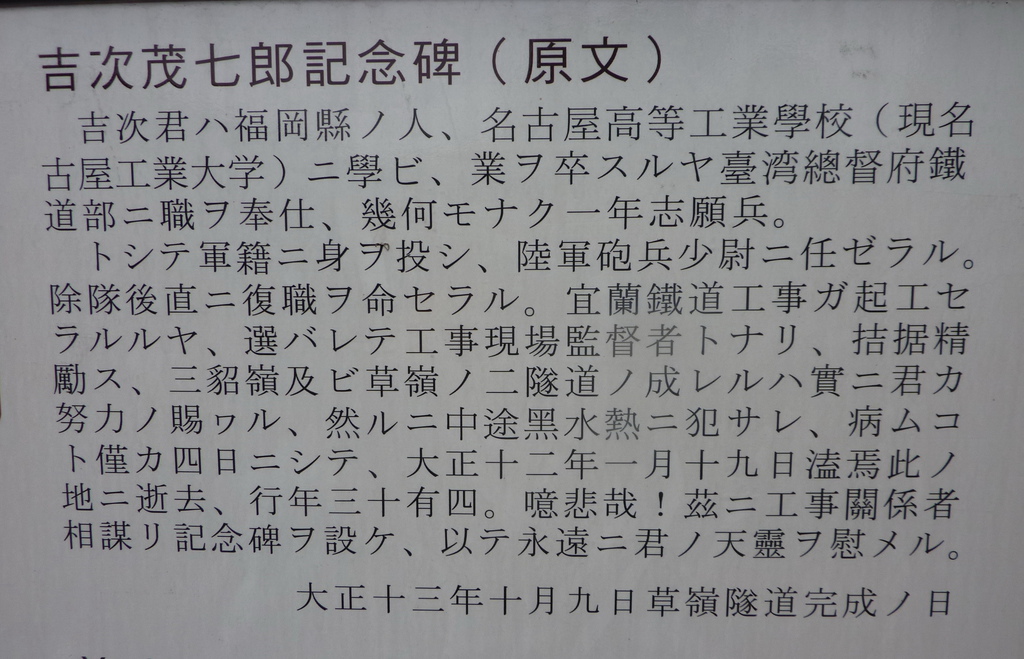 吉次茂七郎記念碑（原文）
吉次君ハ福岡縣ノ人、名古屋高等工業學校（現名
古屋工業大学）ニ學ビ、業ヲ卒スルヤ臺湾總督府鐵
道部ニ職ヲ奉仕、幾何モナク一年志願兵。
トシテ軍籍ニ身ヲ投シ、陸軍砲兵少尉ニ任ゼラル。
除隊後直ニ復職ヲ命セラル。宜蘭鐵道工事ガ起工セ
ラルルヤ、選バレテ工事現場監督者トナリ、拮据精
勵ス、三貂嶺及ビ草嶺ノ二隧道ノ成レルハ實ニ君カ
努力ノ賜ヮル、然ルニ中途黑水熱ニ犯サレ、病ムコ
ト僅カ四日ニシテ、大正十二年一月十九日溘焉此ノ
地ニ逝去、行年三十有四。噫悲哉！茲ニ工事關係者
相謀リ記念碑ヲ設ケ、以テ永遠ニ君ノ天靈ヲ慰メル。
大正十三年十月九日草嶺隧道完成ノ日